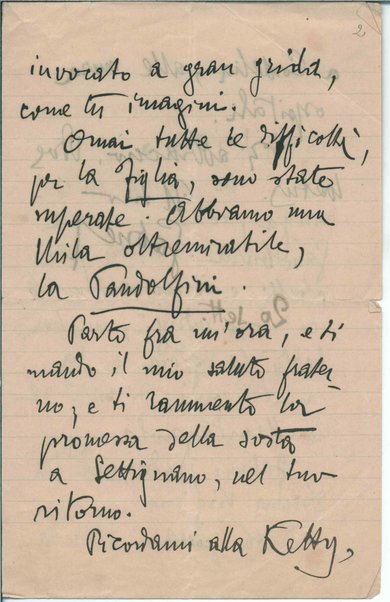 2
invocato a gran grida,
come tu imagini.
Omai tutte le difficoltà,
per la Figlia, sono state
superate. Abbiamo una
Mila oltremirabile,
la Pandolfini.
Parto fra un'ora, e ti
mando il mio saluto frater
no; e ti rammento la
promessa della sosta
a Settignano, nel tuo
ritorno.
Ricordami alla Ketty,